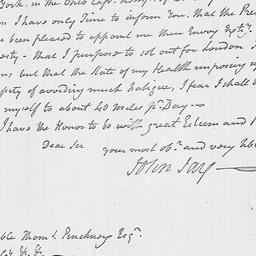 York, in the Ohio Capt.
I have only Time to inform You, that the Pres
been pleased to appoint me their Envoy Exty.
esty - that I purpose to set out for London
but that the State of my Health imposing
ssity of avoiding much Fatigue, I fear I shall
myself to about 40 miles pr. Day -
I have the Honor to be with great Esteem and
Dear Sir your most obt. and very
John Jay -
ble Thom s. Pinckney Esqr.